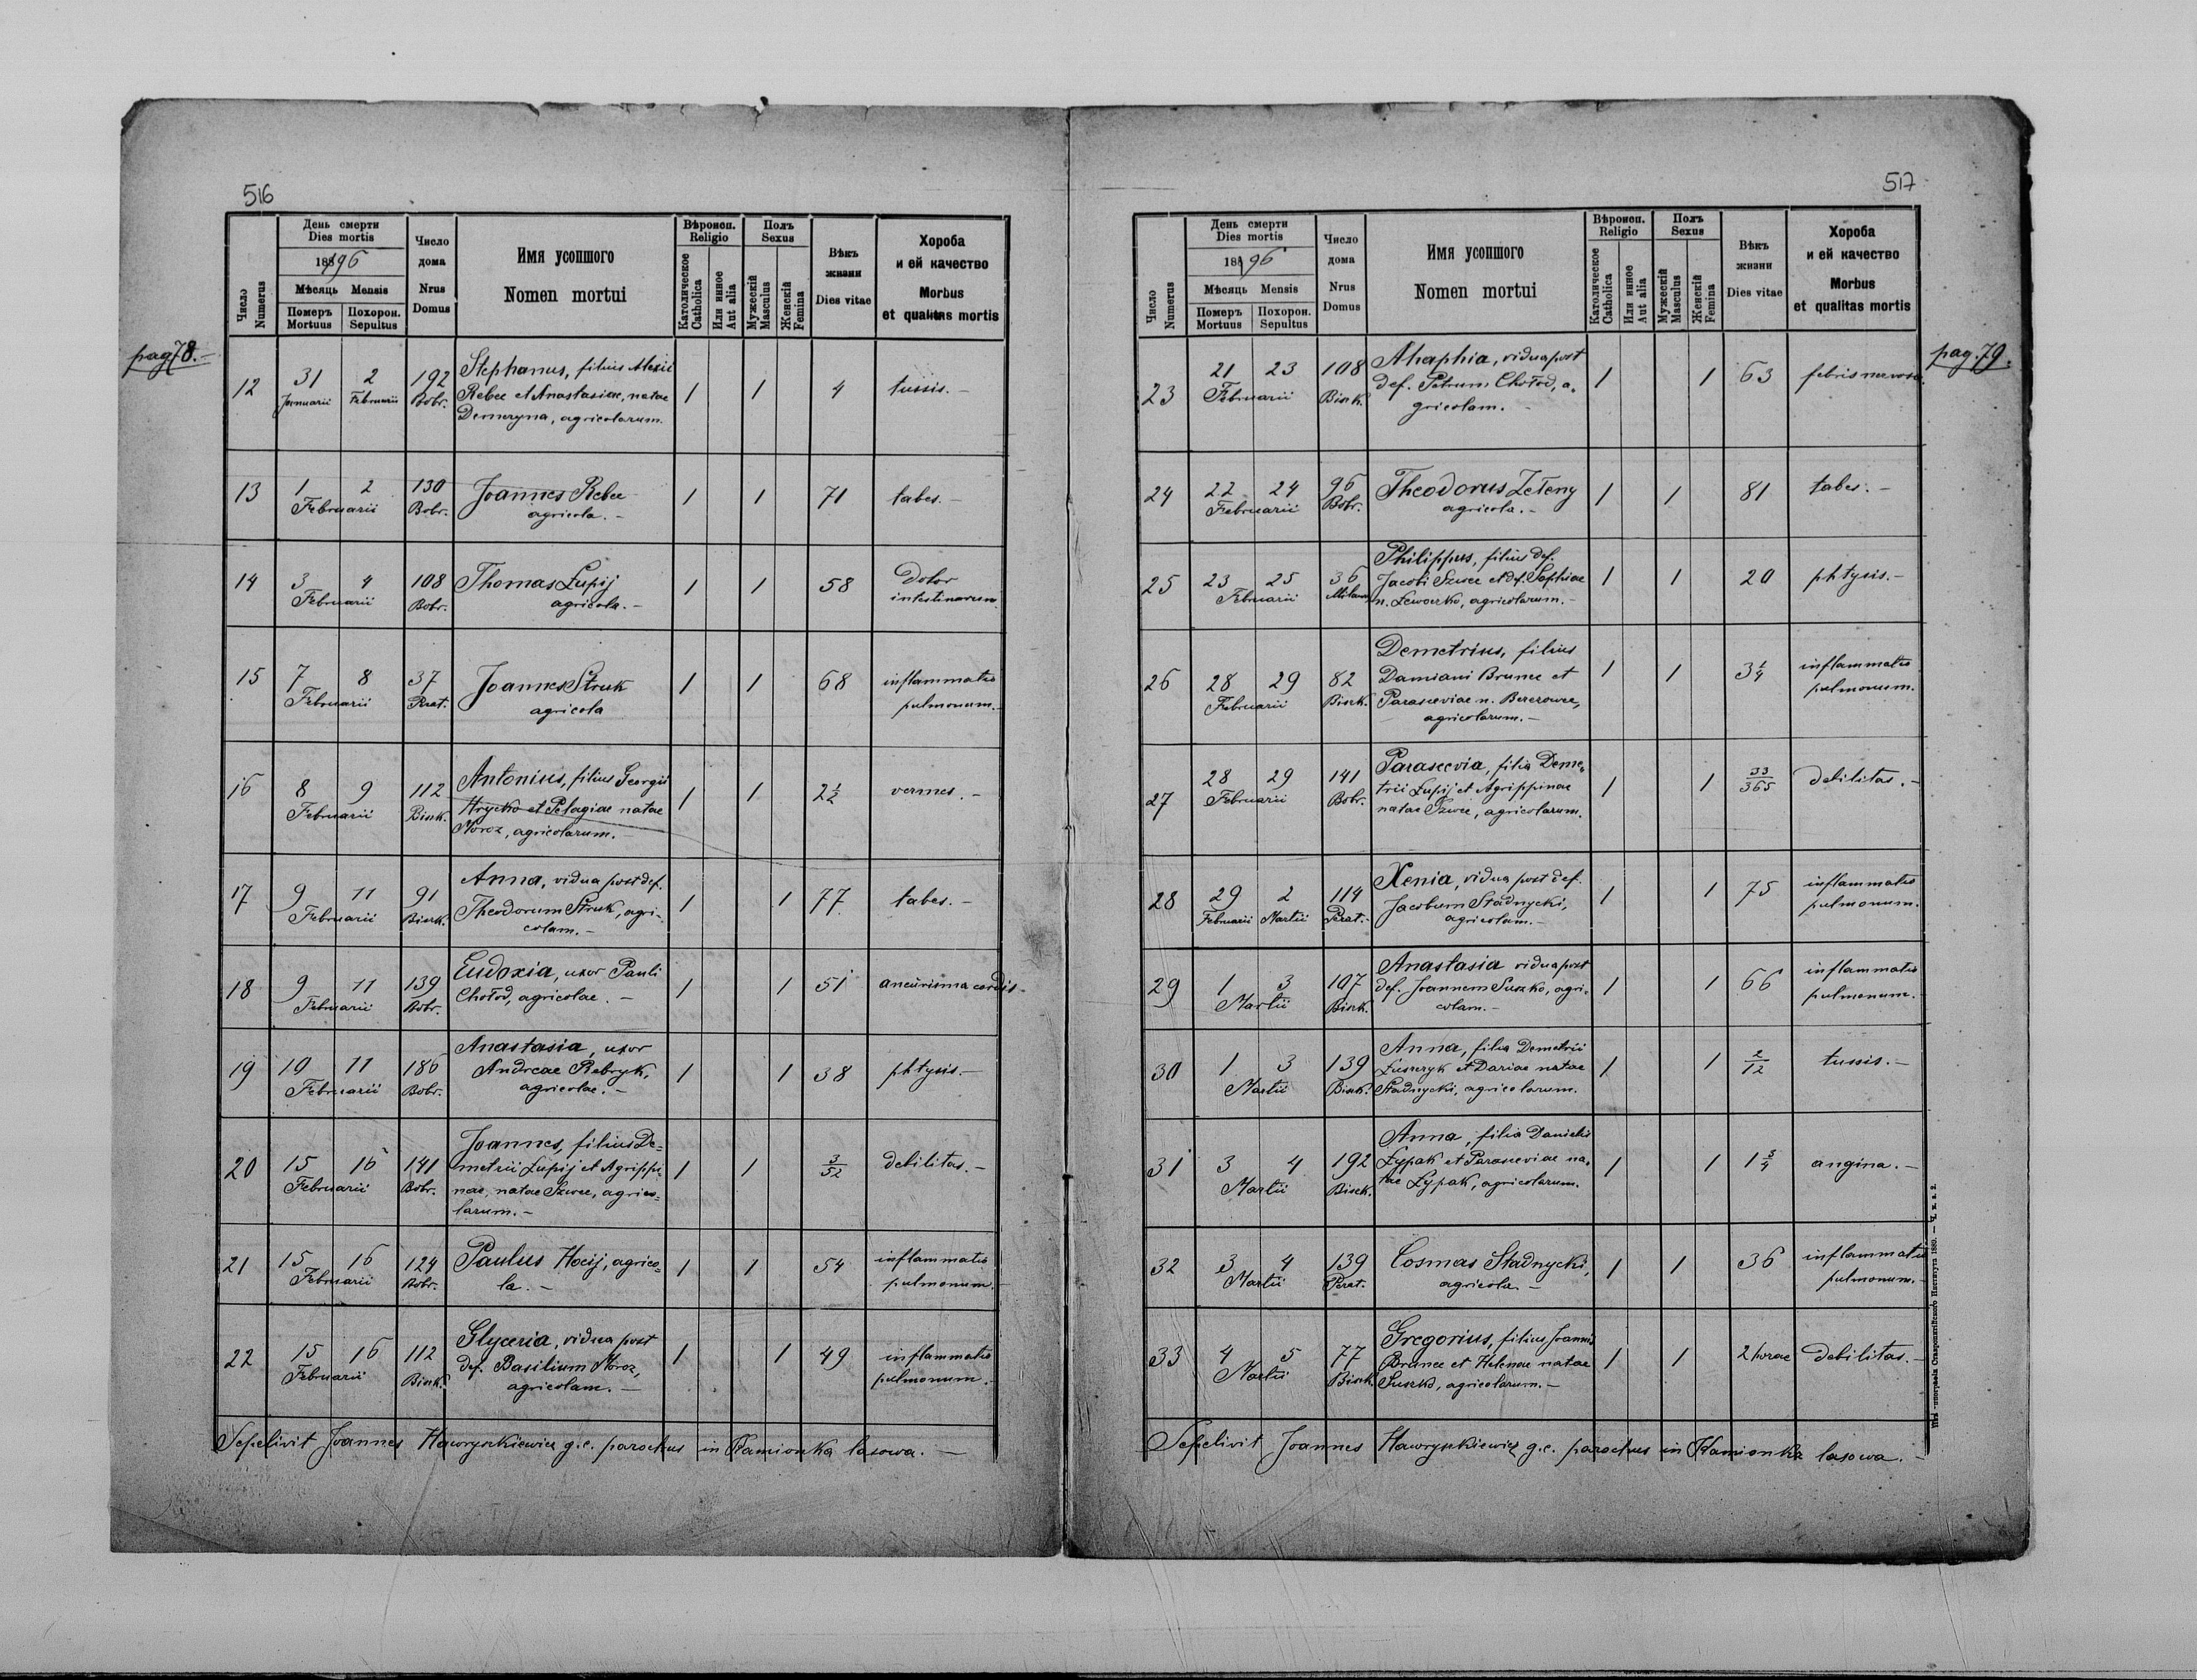 516
pag. 78.-
Число Numerus
День смерти
Dies mortis
1896
Мѣсяць Mensis
Померъ Mortuus
Похорон. Sepultus
Число дома
Nrus Domus
Имя усопшого
Nomen mortui
Вѣроисп. Religio
Католическое Catholica
Или инное Aut alia
Полъ Sexus
Мужескій Masculus
Женскій Femina
Вѣкъ жизни
Dies vitae
Хороба
и ей качество
Morbus
et qualitas mortis
12 31 Januarii 2 Februarii 192 Bobr. 1 1 4 tussis.-
Stephanus, filius Alexii
Rebec et Anastasiae, natae
Demeryna, agricolarum.
13 1 2 Februarii 130 Bobr. 1 1 71 tabes.-
Joannes Rebec
agricola.-
14 3 4 Februarii 108 Bobr. 1 1 58 Dolor intestinorum
Thomas Łupij
agricola.-
15 7 8 Februarii 37 Perat. 1 1 68 inflammatio pulmonum.-
Joannes Struk
agricola
16 8 9 Februarii 112 Bisek. 1 1 2½ vermes.-
Antonius, filius Georgii
Hrycko et Pelagiae natae
Moroz, agricolarum.-
17 9 11 Februarii 91 Bisek. 1 1 77 tabes.-
Anna, vidua post def.
Theodorum Struk, agri-
colam.-
18 9 11 Februarii 139 Bobr. 1 1 51 aneurisma cordis-
Eudoxia, uxor Pauli
Chołod, agricolae.-
19 10 11 Februarii 186 Bobr. 1 1 38 phtysis.-
Anastasia, uxor
Andreae Rebryk,
agricolae.-
20 15 16 Februarii 141 Bobr. 1 1 3/52 debilitas.-
Joannes, filius De=
metrii Łupij et Agrippi-
nae, natae Szwec, agrico=
larum.-
21 15 16 Februarii 124 Bobr. 1 1 54 inflammatio pulmonum.
Paulus Hocij, agrico=
la.-
22 15 16 Februarii 112 Bisek. 1 1 49 inflammatio pulmonum.
Glyceria, vidua post
def. Basilium Moroz,
agricolam.-
Sepelivit Joannes Hawryszkiewicz g.c. parochus in Kamionka lasowa.-
517
pag. 79.
Число Numerus
День смерти
Dies mortis
1896
Мѣсяць Mensis
Померъ Mortuus
Похорон. Sepultus
Число дома
Nrus Domus
Имя усопшого
Nomen mortui
Вѣроисп. Religio
Католическое Catholica
Или инное Aut alia
Полъ Sexus
Мужескій Masculus
Женскій Femina
Вѣкъ жизни
Dies vitae
Хороба
и ей качество
Morbus
et qualitas mortis
23 21 23 Februarii 108 Bisek. 1 1 63 febris nervosa.
Ahaphia, vidua post
def. Petrum Chołod, a-
gricolam.-
24 22 24 Februarii 96 Bobr. 1 1 81 tabes.-
Theodorus Zełeny
agricola.-
25 23 25 Februarii 36 1 1 20 phtysis.-
Philippus, filius def.
Jacobi Szwec et def. Sophiae
n. Lewoczko, agricolarum.-
26 28 29 Februarii 82 Bisek. 1 1 3¼ inflammatio pulmonum.
Demetrius, filius
Damiani Brunec et
Parasceviae n. Berezowec,
agricolarum.-
27 28 29 Februarii 141 Bobr. 1 1 33/365 debilitas.-
Parascevia, filia Deme-
trii Łupij et Agrippinae
natae Szwec, agricolarum.
28 29 Februarii 2 Martii 114 Perat.- 1 1 75 inflammatio pulmonum.
Xenia, vidua post def.
Jacobum Stadnycki,
agricolam.-
29 1 3 Martii 107 Bisek. 1 1 66 inflammatio pulmonum.
Anastasia vidua post
def. Joannem Suszko, agri-
colam.-
30 1 3 Martii 139 Bisek. 1 1 2/12 tussis.-
Anna, filia Demetrii
et Dariae natae
Stadnycki, agricolarum.
31 3 4 Martii 192 Bisek. 1 1 1¾ angina.-
Anna, filia Danielis
Łypak et Parasceviae na-
tae Łypak, agricolarum.
32 3 4 Martii 139 Perat. 1 1 36 inflammatio pulmonum.-
Cosmas Stadnycki,
agricola.-
33 4 5 Martii 77 Bisek. 1 1 2 horae debilitas.-
Gregorius, filius Joannis
Brunec et Helenae natae
Suszko, agricolarum.-
Sepelivit Joannes Hawryszkiewicz g.c. parochus in Kamionka lasowa.-
Ставропигійского Института 1889.